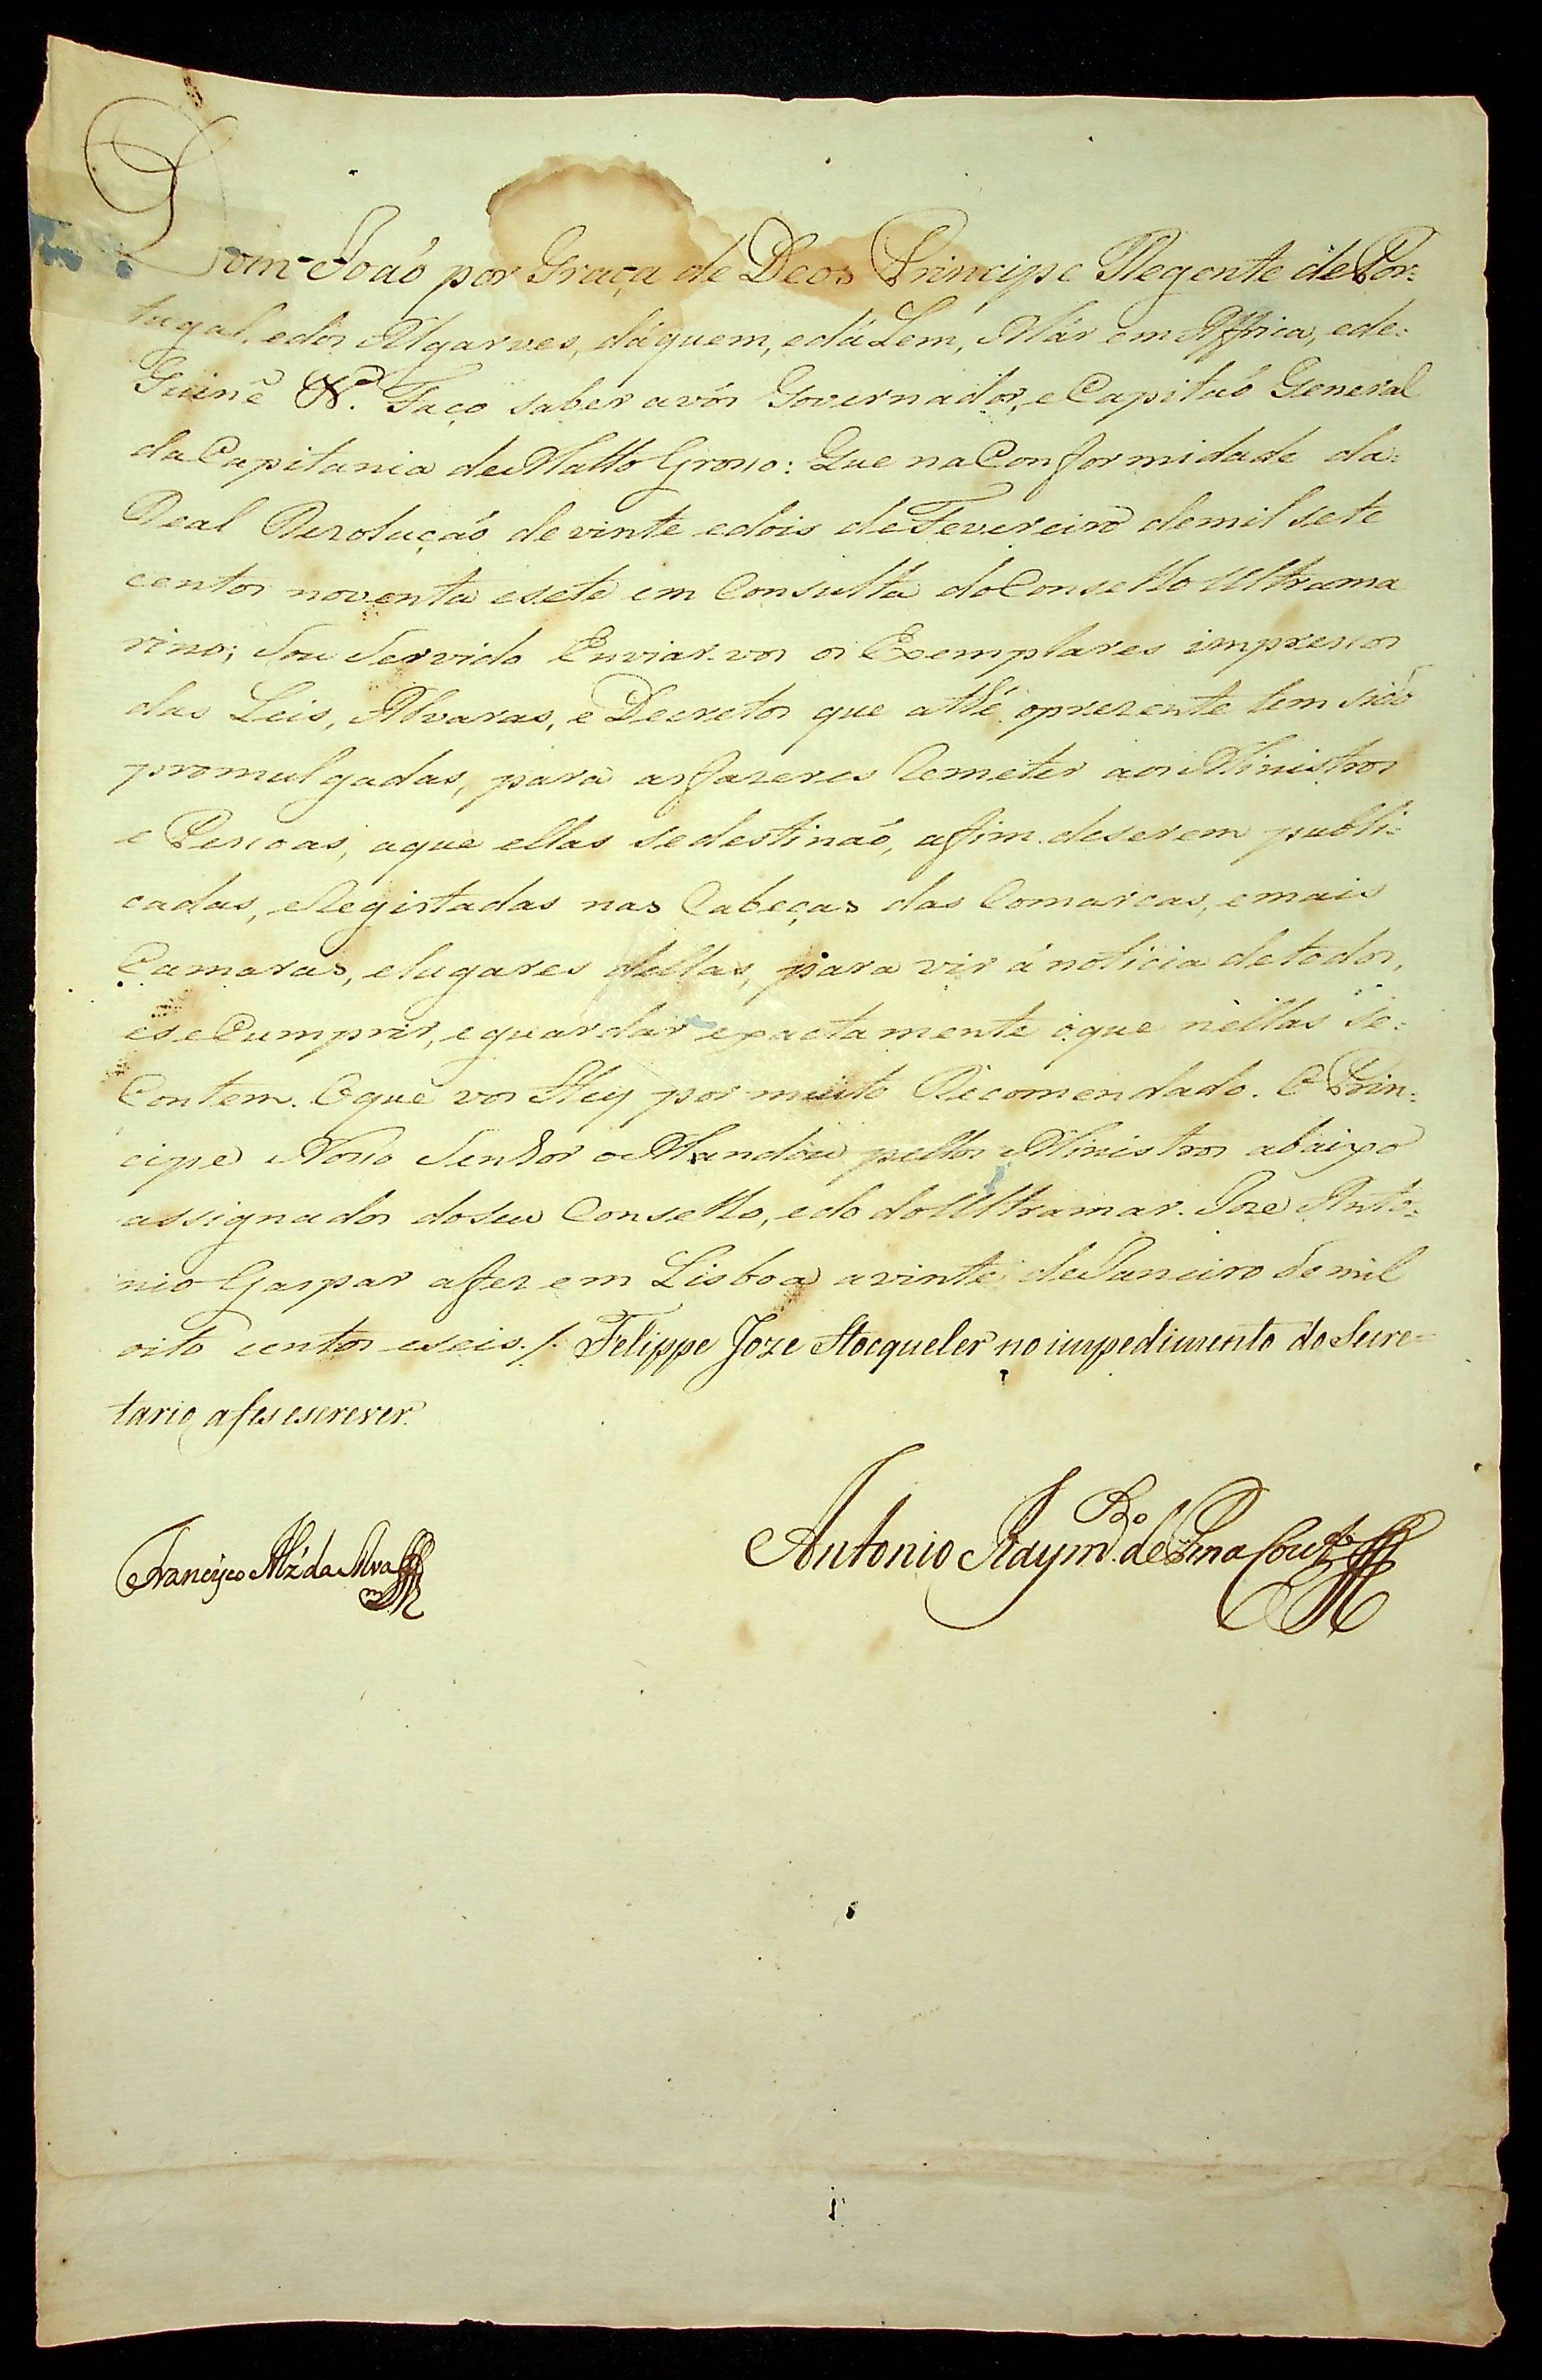 Dom João por Graça de Deos Principe Regente de Por=
tugal, e dos Algarves, dáquem, e dá Lem, Már em Affrica, e de=
Guiné &ª. Faço saber a vós Governador, e Capitaó General
da Capitania de Matto Grosso: Que na Conformidade da=
Real Rezoluçaó de vinte e dois de Fevereiro de mil sete
centos noventa e sete em Consulta do Conselho Ultrama
rino; Sou Servido Enviar-vos os Exemplares impressos
das Leis, Alvaras, e Decretos que athé oprezente tem sido
promulgadas, para as fazeres Remeter aos Ministros
e Pessoas, aque ellas se destinaó, afim de serem publi=
cadas, e Registadas nas Cabeças das Comarcas, e mais
Camaras, e lugares dellas, para vir á noticia de todos,
e se Cumprir, e guardar exactamente o que nellas se=
Contem. O que vos Hey por muito Recomendado. O Prin=
cipe Nosso Senhor o Mandou pellos Ministros abaixo
assignados do seu Conselho, e do do Ultramar. Joze Anto=
nio Gaspar a fez em Lisboa a vinte de Janeiro de mil
oito centos e seis./. Felippe Joze Stocqueler no impedimento do Secre=
tario a fes escrever.
Francisco Alz' da Silva
Antonio Raymdo. de Pina Coutº